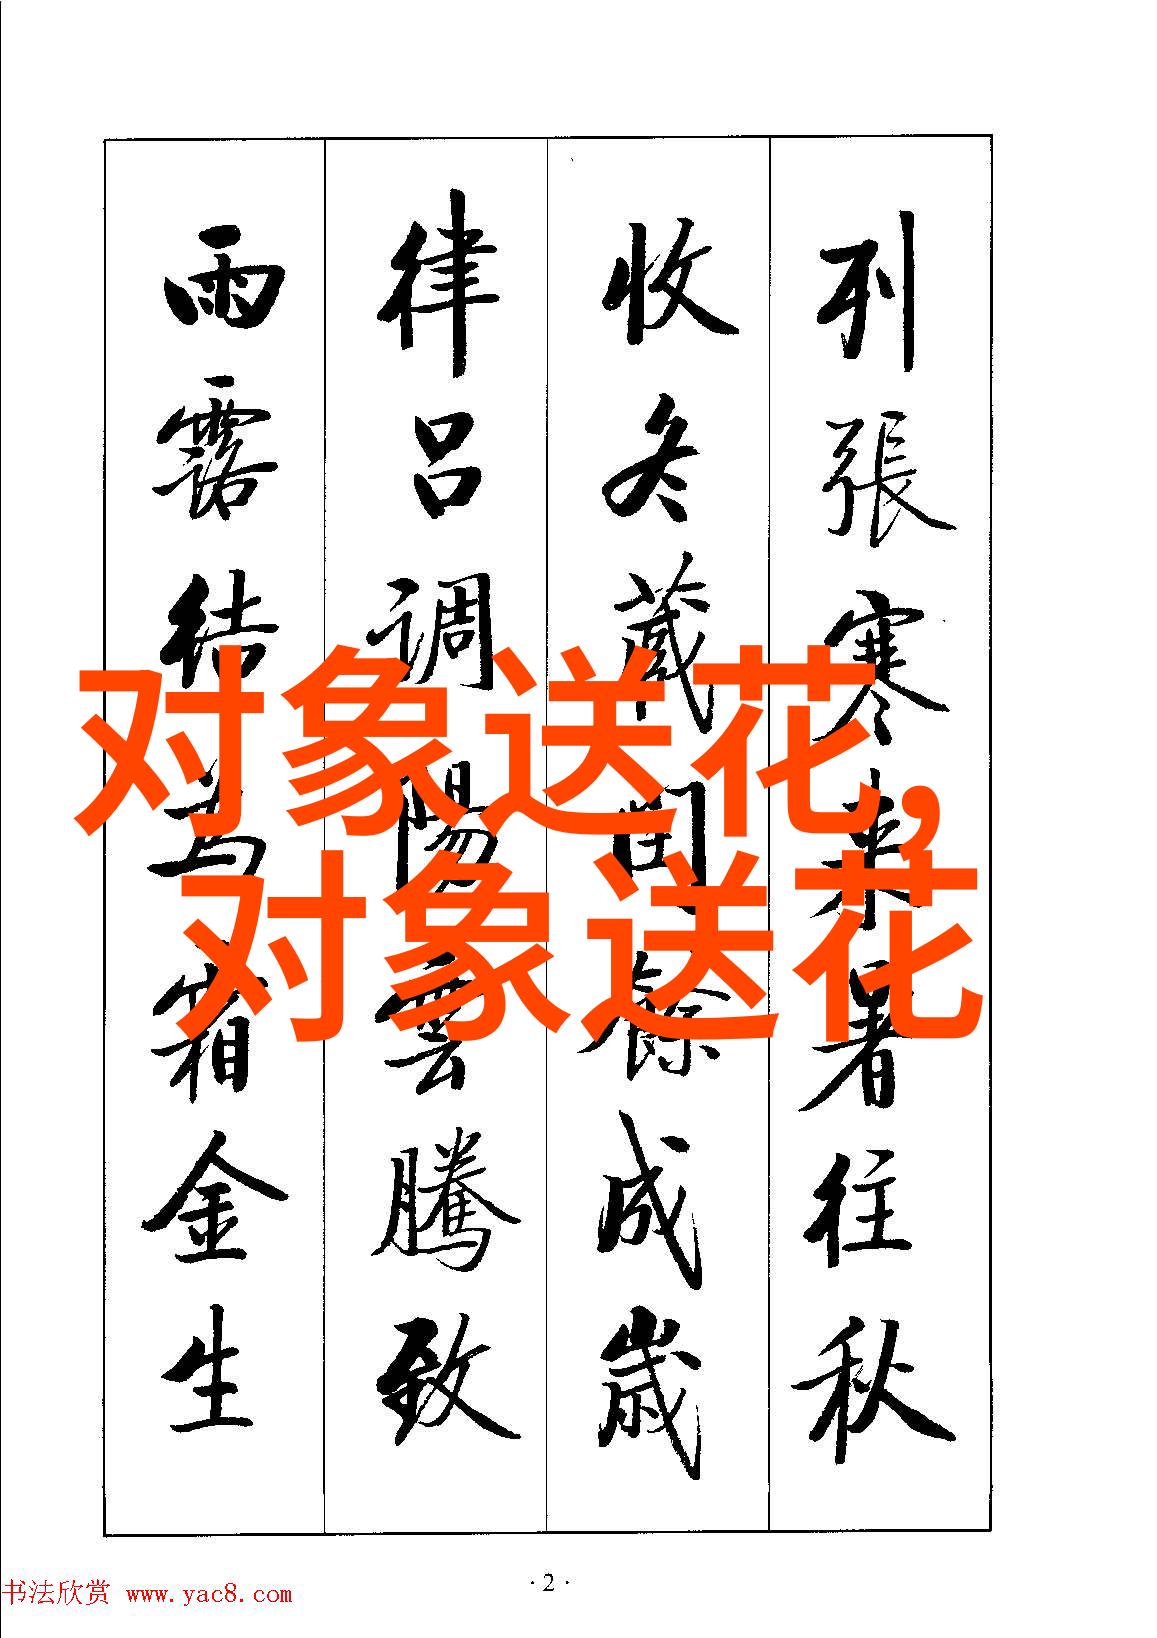 列張寒来暑往秋
收冬藏閏餘成歲
律吕调陽雲騰致
雨露结为霜金生
对象送花,
对象送花
·2·
书法欣赏 www.yac8.com